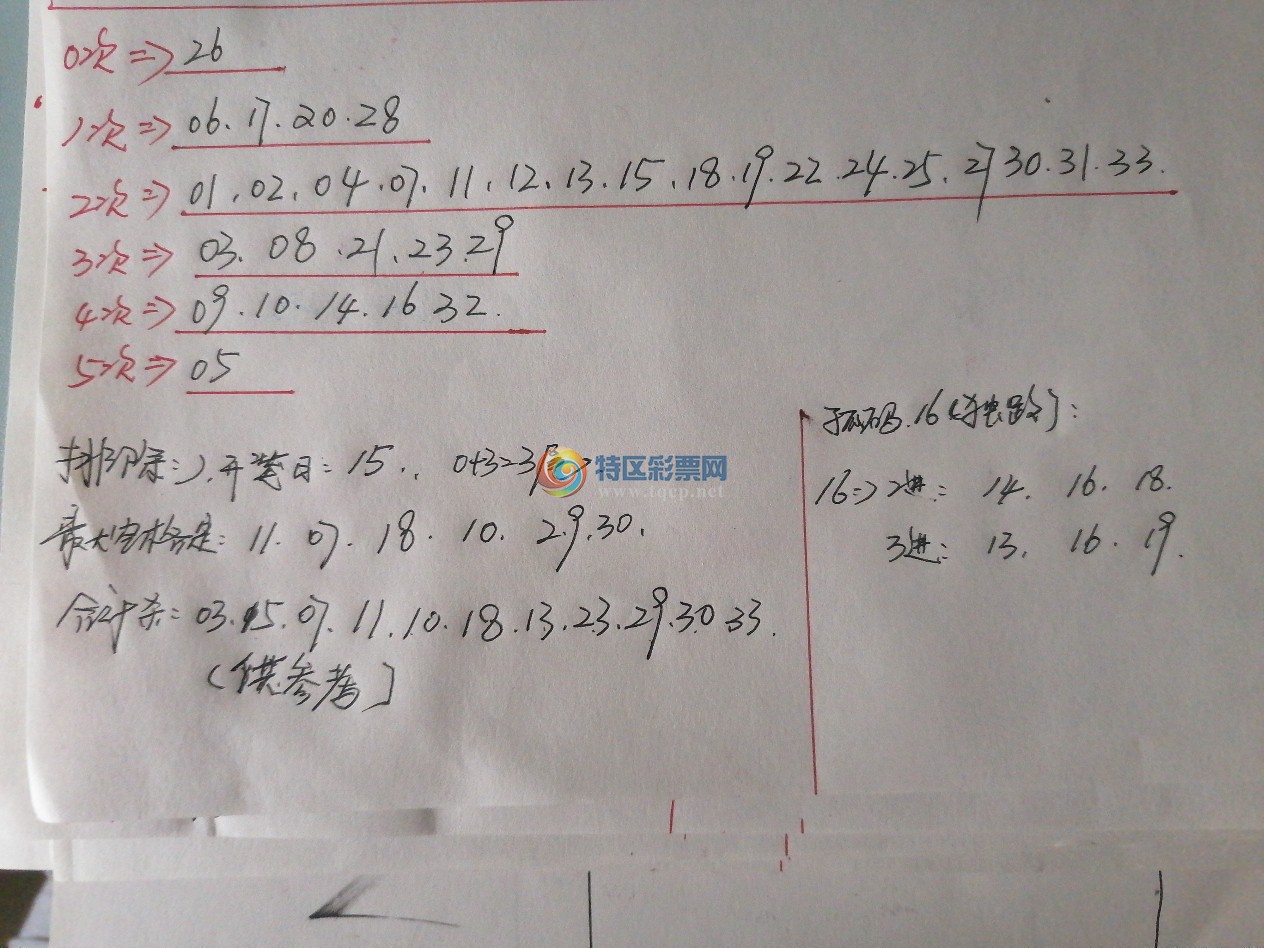 0次=>26
1次=>06.17.20.28
2次=>01.02.04.07.11.12.13.15.18.19.22.24.25.27 30.31.33.
3次=>03.08.21.23.29
4次=>09.10.14.16 32.
5次=>05
排除:1.开奖日:15.. 0+3=3
特区彩票网
www.tqcp.net
最大: 11. 07. 18. 10. 29.30.
合计杀:03.15.07.11.10.18.13.23.29.30 33.
(供参考)
码.16
16=>2进: 14. 16. 18.
3进: 13. 16. 19.